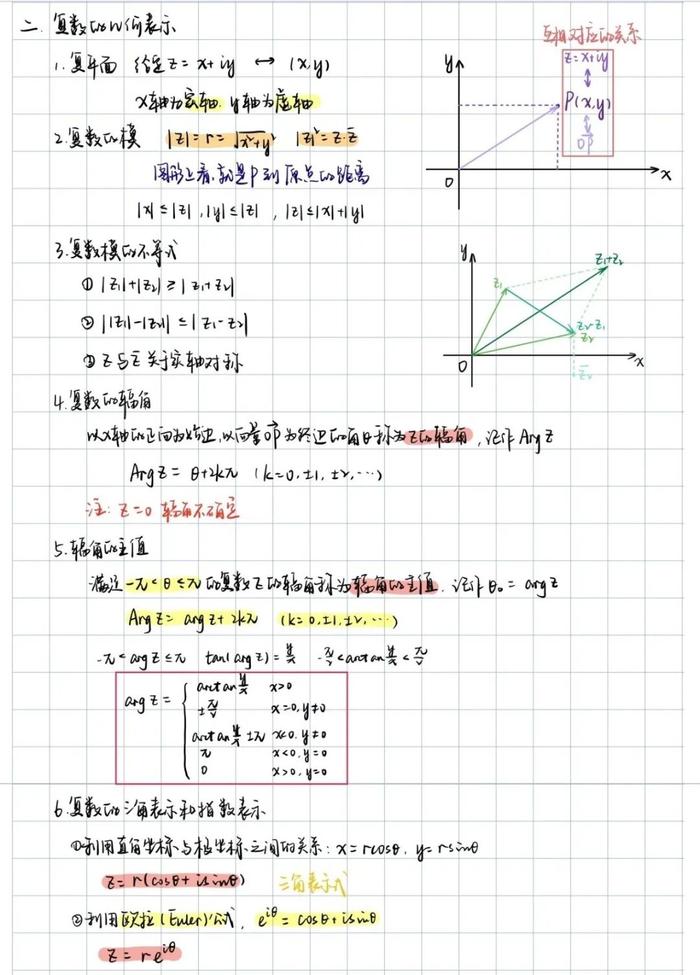 二. 复数的几何表示
1. 复平面 给定 z = x+iy ↔ (x,y)
x轴为实轴. y轴为虚轴
2. 复数的模 |z| = r = √x²+y² |z|² = z·z̄
图形上看,就是P到原点的距离
|x| ≤ |z| , |y| ≤ |z| , |z| ≤ |x|+|y|
互相对应的关系
z = x+iy
P(x,y)
OP
y
O
x
3. 复数模的不等式
① |z₁|+|z₂| ≥ |z₁+z₂|
② ||z₁|-|z₂|| ≤ |z₁-z₂|
③ z与z̄关于实轴对称
y
z₁+z₂
z₁
z₂-z₁
z₂
O
x
z̄₂
4. 复数的辐角
以x轴的正向为始边,以向量OP为终边的角θ称为z的辐角, 记作 Arg z
Arg z = θ+2kπ (k=0,±1,±2,…)
注: z=0 辐角不确定
5. 辐角的主值
满足 -π<θ≤π 的复数z的辐角称为辐角的主值. 记作 θ₀ = arg z
Arg z = arg z + 2kπ (k=0,±1,±2,…)
-π < arg z ≤ π tan(arg z) = y/x -π/2 < arctan y/x < π/2
arg z = { arctan y/x x>0
±π/2 x=0, y≠0
arctan y/x ±π x<0, y≠0
π x<0, y=0
0 x>0, y=0
6. 复数的三角表示和指数表示
①利用直角坐标与极坐标之间的关系: x=rcosθ, y=rsinθ
z = r(cosθ+isinθ) 三角表示式
②利用欧拉(Euler)公式, e^iθ = cosθ+isinθ
z = re^iθ